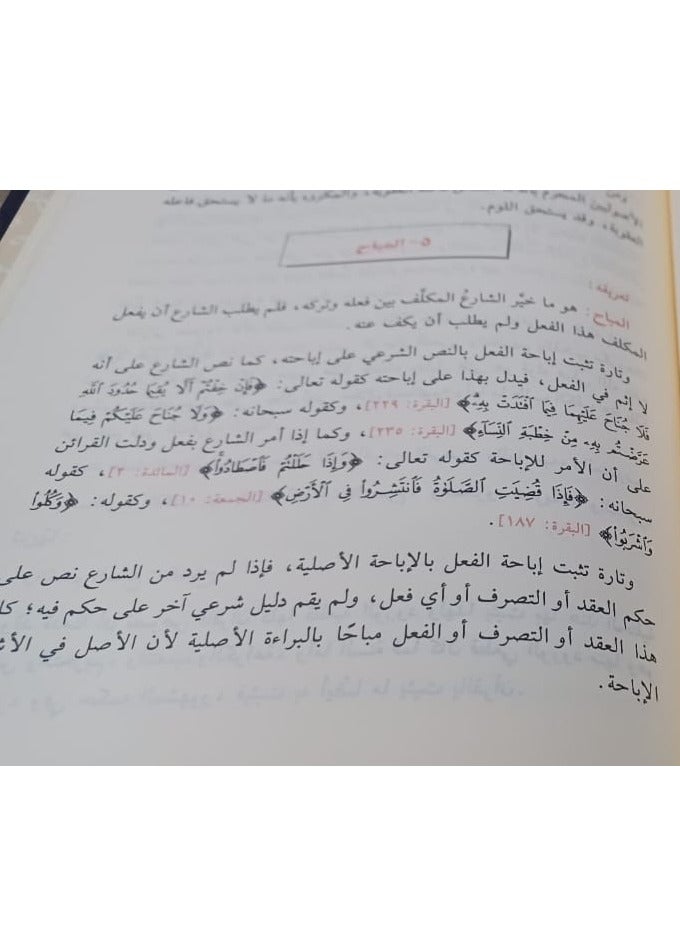 الأصوليين المحرم بأنه
العقوبة، والمكروه بأنه ما لا يستحق فاعله
العقوبة، وقد يستحق اللوم.
٥ - المباح
تعريفه:
المباح: هو ما خيَّر الشارعُ المكلَّف بين فعله وتركه، فلم يطلب الشارع أن يفعل
المكلف هذا الفعل ولم يطلب أن يكف عنه.
وتارة تثبت إباحة الفعل بالنص الشرعي على إباحته، كما نص الشارع على أنه
لا إثم في الفعل، فيدل بهذا على إباحته كقوله تعالى: ﴿فَإِنْ خِفْتُمْ أَلَّا يُقِيمَا حُدُودَ اللَّهِ
فَلَا جُنَاحَ عَلَيْهِمَا فِيمَا افْتَدَتْ بِهِ﴾ [البقرة: ٢٢٩]، وكقوله سبحانه: ﴿وَلَا جُنَاحَ عَلَيْكُمْ فِيمَا
عَرَّضْتُم بِهِ مِنْ خِطْبَةِ النِّسَاءِ﴾ [البقرة: ٢٣٥]، وكما إذا أمر الشارع بفعل ودلت القرائن
على أن الأمر للإباحة كقوله تعالى: ﴿وَإِذَا حَلَلْتُمْ فَاصْطَادُوا﴾ [المائدة: ٢]، كقوله
سبحانه: ﴿فَإِذَا قُضِيَتِ الصَّلَوٰةُ فَانتَشِرُوا فِي الْأَرْضِ﴾ [الجمعة: ١٠]، وكقوله: ﴿وَكُلُوا
وَاشْرَبُوا﴾ [البقرة: ١٨٧].
وتارة تثبت إباحة الفعل بالإباحة الأصلية، فإذا لم يرد من الشارع نص على
حكم العقد أو التصرف أو أي فعل، ولم يقم دليل شرعي آخر على حكم فيه؛ كا
هذا العقد أو التصرف أو الفعل مباحًا بالبراءة الأصلية لأن الأصل في الأش
الإباحة.